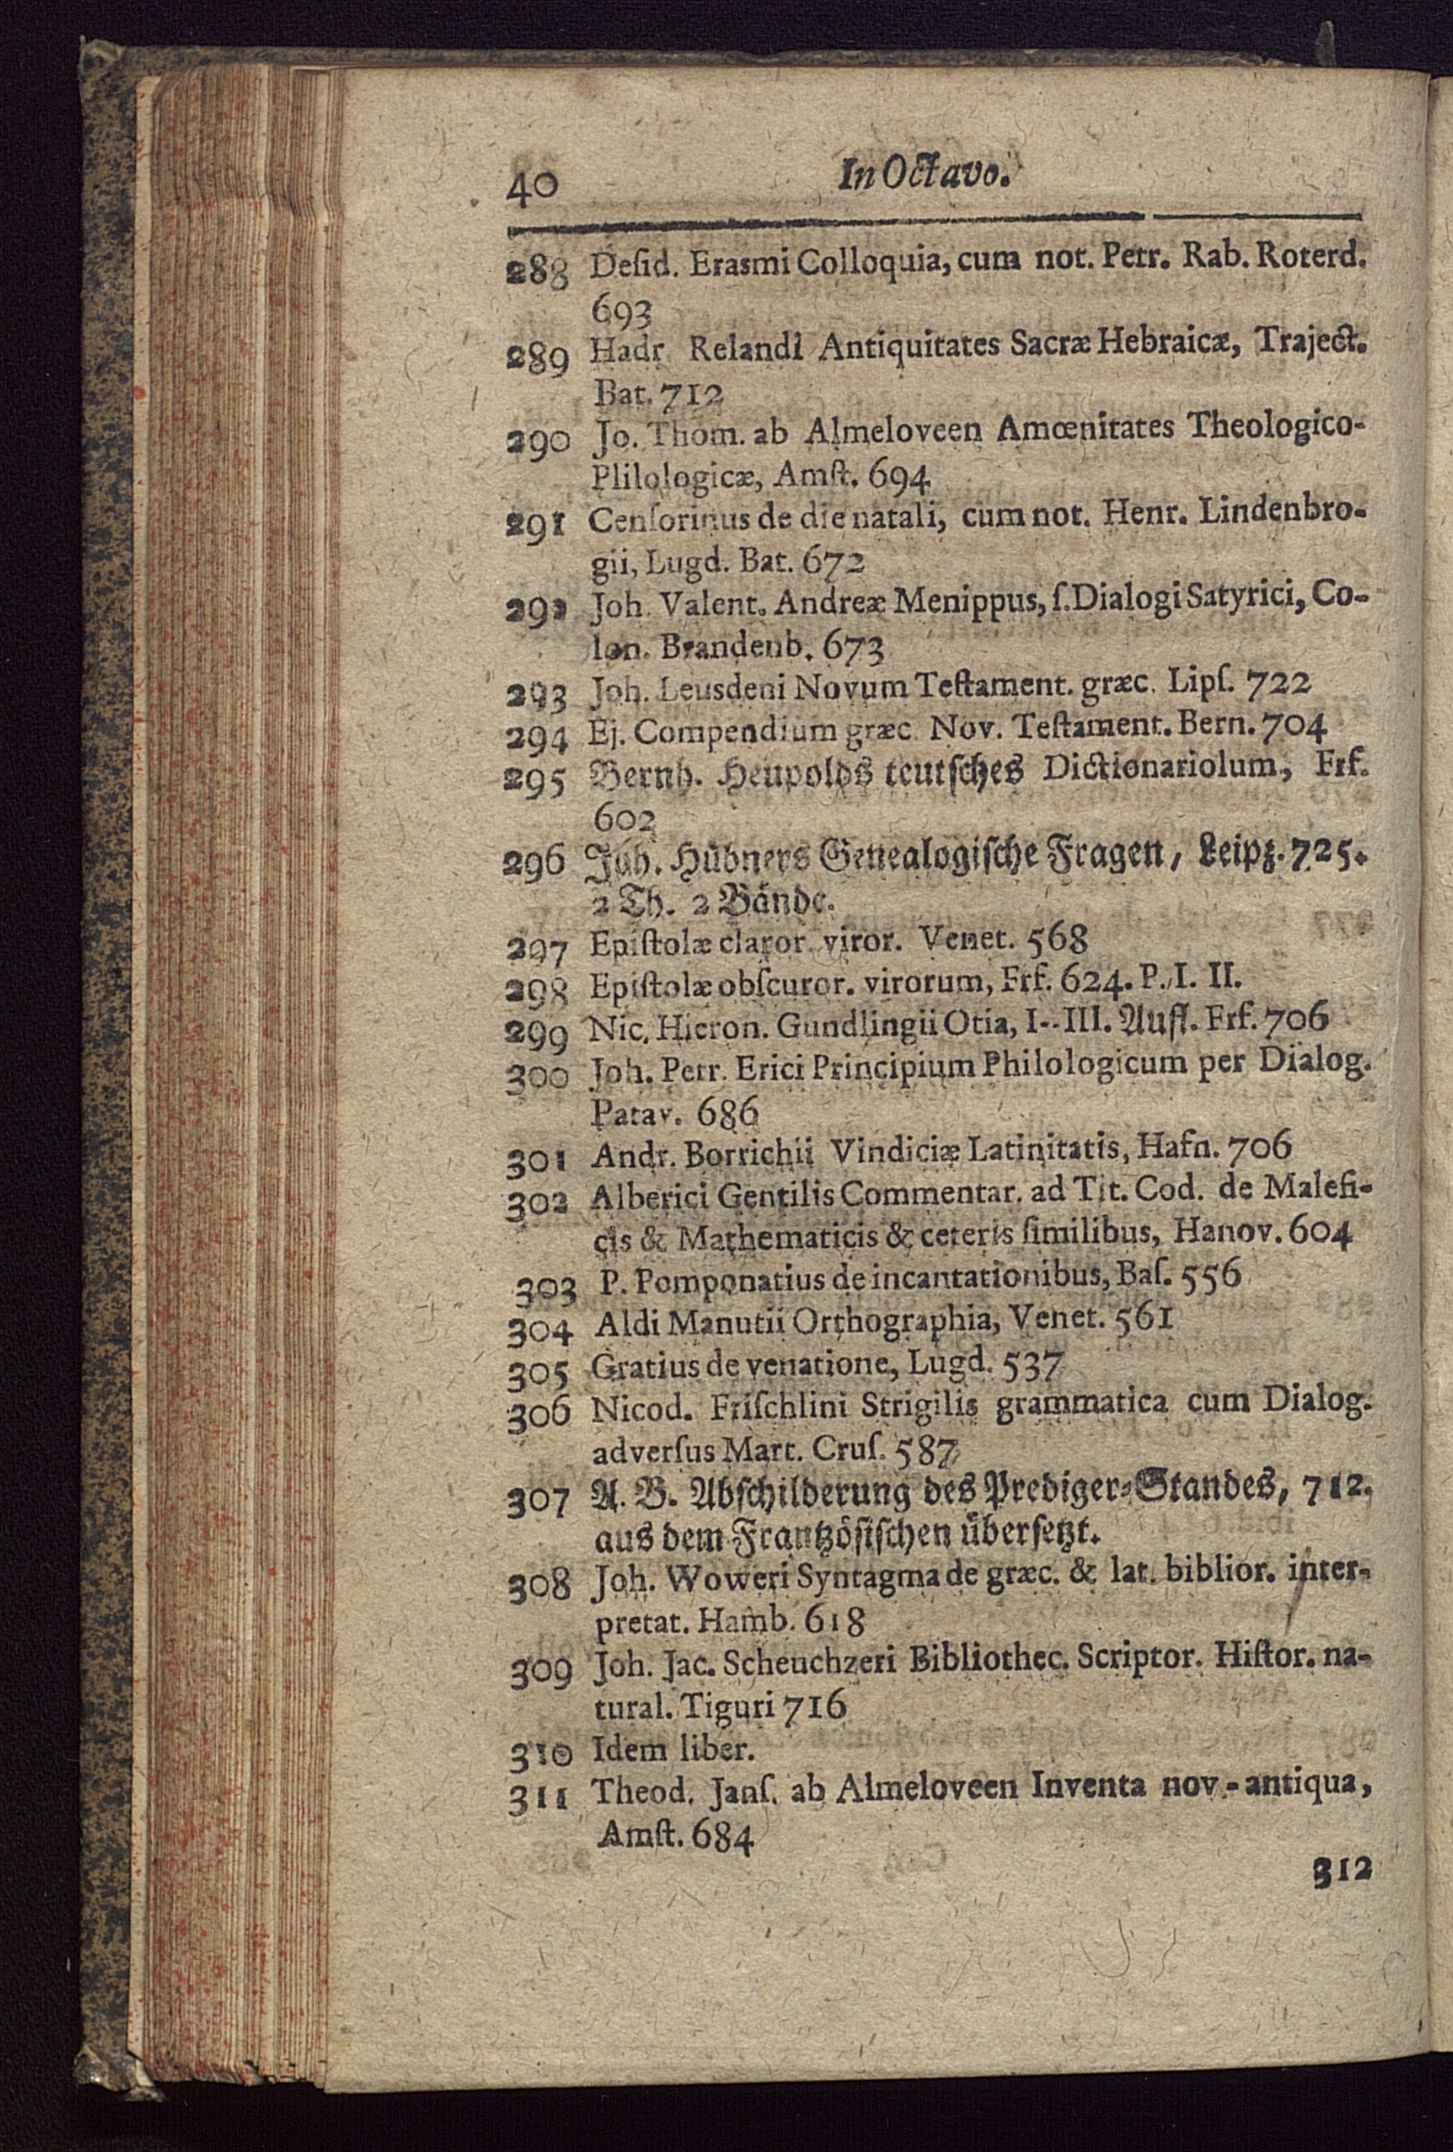 40 In Octavo.
288 Deſid. Erasmi Colloquia, cum not. Petr. Rab. Roterd.
693
289 Hadr Relandi Antiquitates Sacræ Hebraicæ, Traject.
Bat. 712
290 Jo. Thom. ab Almeloveen Amœnitates Theologico-
Plilologicæ, Amſt. 694
291 Cenſorinus de die natali, cum not. Henr. Lindenbro-
gii, Lugd. Bat. 672
292 Joh. Valent. Andreæ Menippus, ſ. Dialogi Satyrici, Co-
lon. Brandenb. 673
293 Joh. Leusdeni Novum Teſtament. græc. Lipſ. 722
294 Ej. Compendium græc. Nov. Teſtament. Bern. 704
295 Bernh. Heupolds teutſches Dictionariolum, Frf.
602
296 Joh. Hübners Genealogiſche Fragen, Leipz. 725.
2 Th. 2 Bände.
297 Epiſtolæ claror. viror. Venet. 568
298 Epiſtolæ obſcuror. virorum, Frf. 624. P. I. II.
299 Nic. Hieron. Gundlingii Otia, I--III. Aufl. Frf. 706
300 Joh. Petr. Erici Principium Philologicum per Dialog.
Patav. 686
301 Andr. Borrichii Vindiciæ Latinitatis, Hafn. 706
302 Alberici Gentilis Commentar. ad Tit. Cod. de Malefi-
cis & Mathematicis & ceteris ſimilibus, Hanov. 604
303 P. Pomponatius de incantationibus, Baſ. 556
304 Aldi Manutii Orthographia, Venet. 561
305 Gratius de venatione, Lugd. 537
306 Nicod. Friſchlini Strigilis grammatica cum Dialog.
adverſus Mart. Cruſ. 587
307 A. B. Abſchilderung des Prediger-Standes, 712.
aus dem Frantzöſiſchen überſetzt.
308 Joh. Woweri Syntagma de græc. & lat. biblior. inter-
pretat. Hamb. 618
309 Joh. Jac. Scheuchzeri Bibliothec. Scriptor. Hiſtor. na-
tural. Tiguri 716
310 Idem liber.
311 Theod. Janſ. ab Almeloveen Inventa nov.-antiqua,
Amſt. 684
312